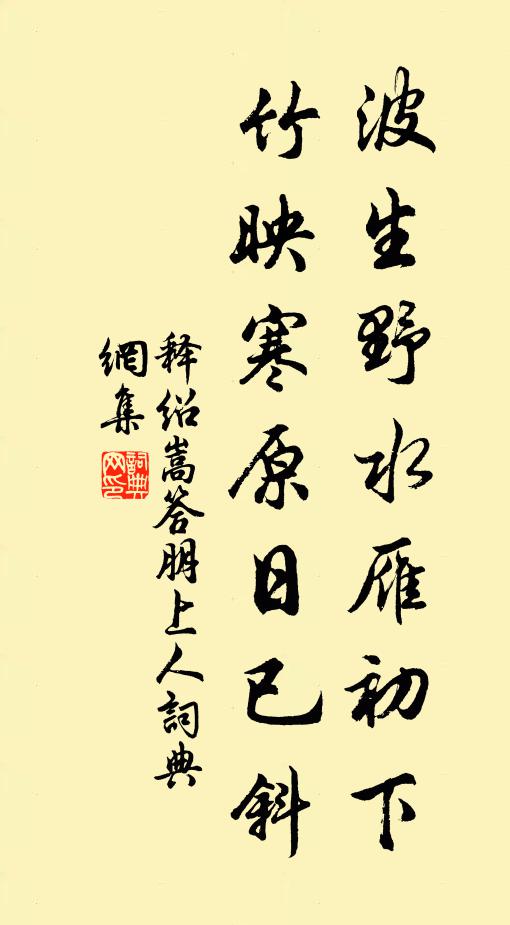 波生野水雁初下
竹映寒原日已斜
释绍嵩答朋上人詞典
網集
詞典
网印